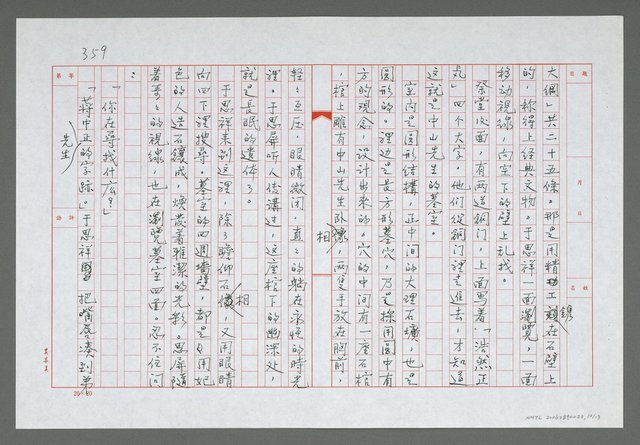 359
大綱」共二十五條。那是用精功鐫在石壁上
的，稱得上經典文物。于思祥一面瀏覽，一面
移動視線，向室下的壁上亂找。
祭堂後面，有兩道銅門，上面寫着：「浩然正
氣」四個大字，他們從銅門裡走進去，才知道
這就是中山先生的墓室。
室內是圓形結構，正中間的大理石壙，也是
圓形的。裡邊是長方形墓穴，乃是採用圓中有
方的觀念，設計出來的。穴的中間有一座石棺
，棺上雕有中山先生臥相，兩隻手放在胸前，
輕輕互压，眼睛微闭，直直的躺在永恆的時光
裡。于思屏听人传講过，這座棺下的幽深处，
就是長眠的遺体了。
于思祥来到這裡，除了瞻仰石相，又用眼睛
向四下裡搜尋。墓室的四週墻壁，都是用妃
色的人造石鑲成，煥發着雅潔的光影。思屏隨
着哥哥的視線，也在瀏覽墓室四面。忍不住问
：
「你在尋找什麽？」
「蔣中正先生的字跡。」于思祥把嘴唇凑到弟
20×20